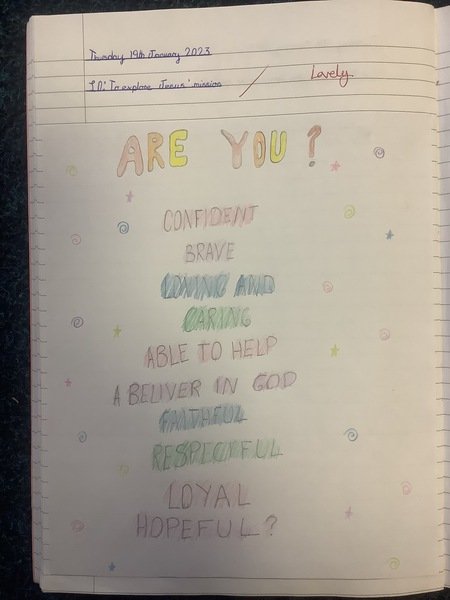 Thursday 19th January 2023
LO: To explore Jesus' mission
Lovely
ARE YOU?
CONFIDENT
BRAVE
LOVING AND
CARING
ABLE TO HELP
A BELIVER IN GOD
FAITHFUL
RESPECTFUL
LOYAL
HOPEFUL?